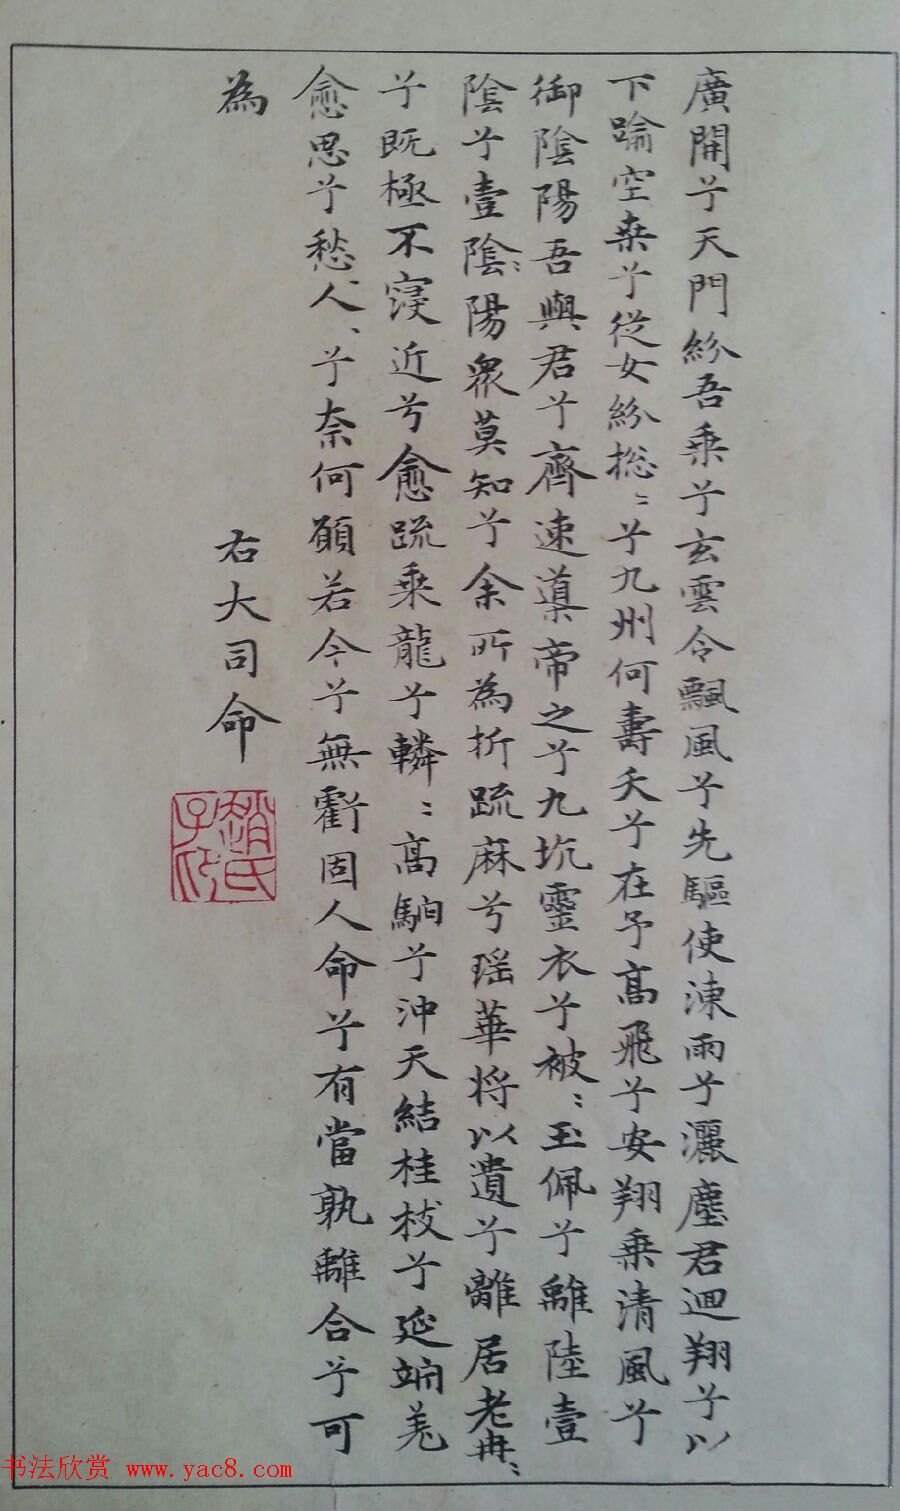 廣開兮天門紛吾乘兮玄雲令飄風兮先驅使涷雨兮灑塵君迴翔兮以
下踰空桒兮從女紛捴〻兮九州何壽夭兮在予高飛兮安翔乗清風兮
御陰陽吾與君兮齊速導帝之兮九坑靈衣兮被〻玉佩兮離陸壹
陰兮壹陰〻陽衆莫知兮余所為折疏麻兮瑶華將以遺兮離居老冉〻
兮既極不寖近兮愈疏乘龍兮轔〻高駉兮沖天結桂枝兮延竚羌
愈思兮愁人〻兮奈何願若今兮無虧固人命兮有當孰離合兮可
為
右大司命
趙氏子昂
书法欣赏 www.yac8.com